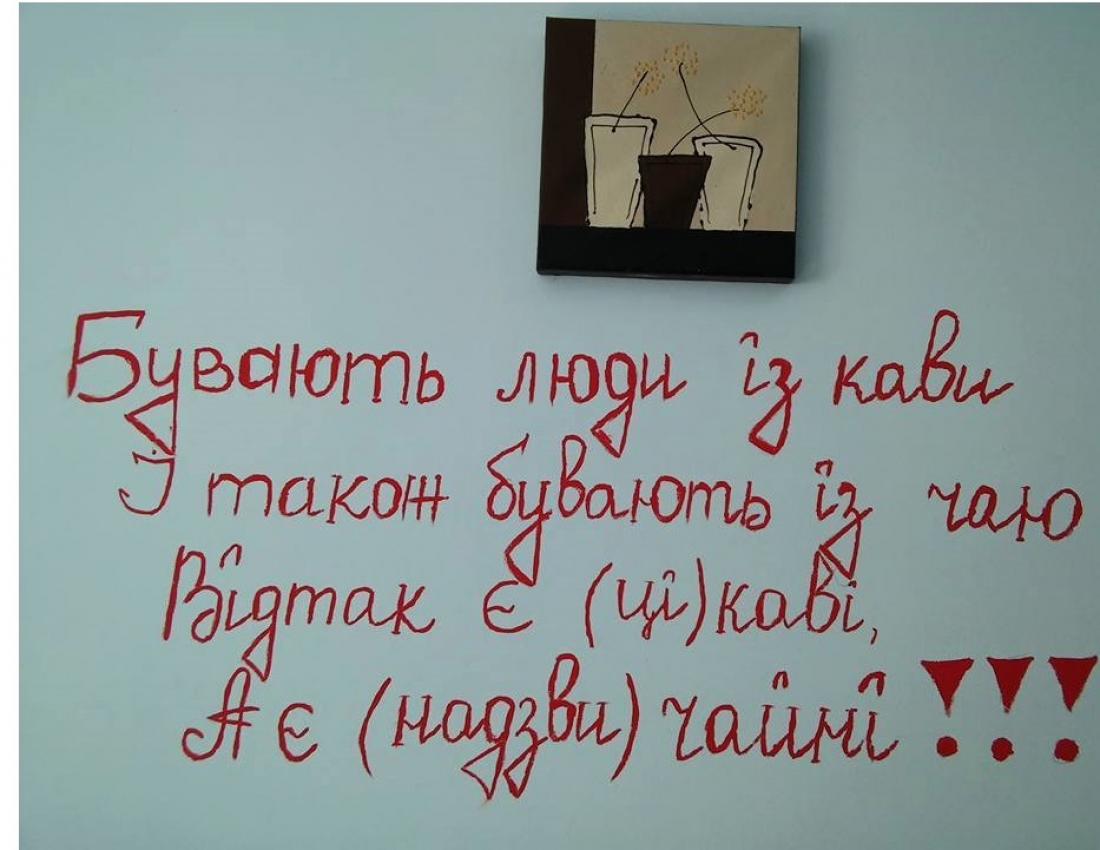 Бувають люди із кави
І також бувають із чаю
Відтак є (ці)каві,
А є (надзви)чайні!!!